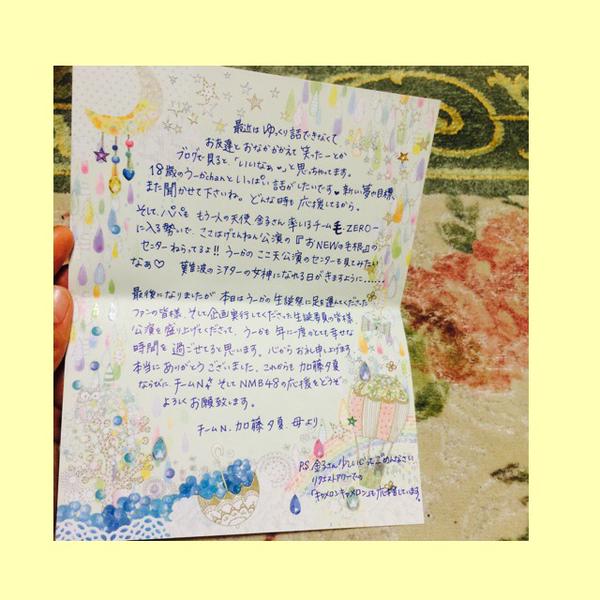 最近は ゆっくり話できなくて
お友達と おなかかかえて 笑ったーとか
ブログで見ると、「いいなぁ♥」と 思っちゃってます。
18歳のうーかchanと いっぱい 話がしたいです♥ 新しい夢や目標、
また 聞かせて下さいね。どんな時も 応援してるから。
そして、パパも もう一人の天使 金子さん 率いるチーム毛-ZERO-
に入る勢いで、ここさけてんねん公演の『おNEWの毛根』の
センターねらってるよ!! うーかの ここ天公演のセンターも見てみたい
なぁ♡ 難波の シアターの女神になれる日がきますように……
最後になりましたが 本日は うーかの 生誕祭に足を運んでくださった
ファンの皆様、そして企画実行してくださった 生誕委員の皆様、
公演を盛り上げてくださって、うーかも 年に一度のとても幸せな
時間を 過ごせてると思います。心からお礼申し上げます。
本当にありがとうございました。これからも 加藤夕夏
ならびに チームN、そして NMB48の応援をどうぞ
よろしく お願い致します。
チームN. 加藤夕夏 母より
P.S. 金子さん 少しいじって ごめんなさい
リクエストアワーでの
「キャメロンキャメロン」も 応援しています。